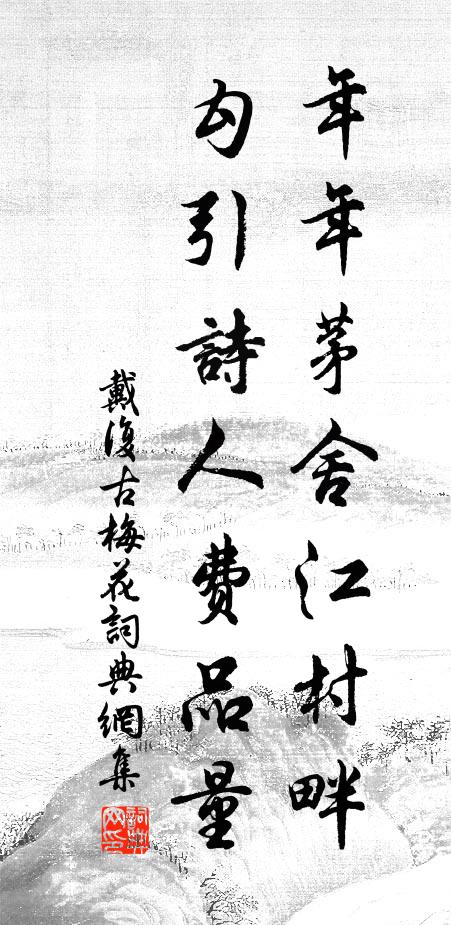 年年茅舍江村畔
勾引詩人費品量
戴復古梅花詞典網集